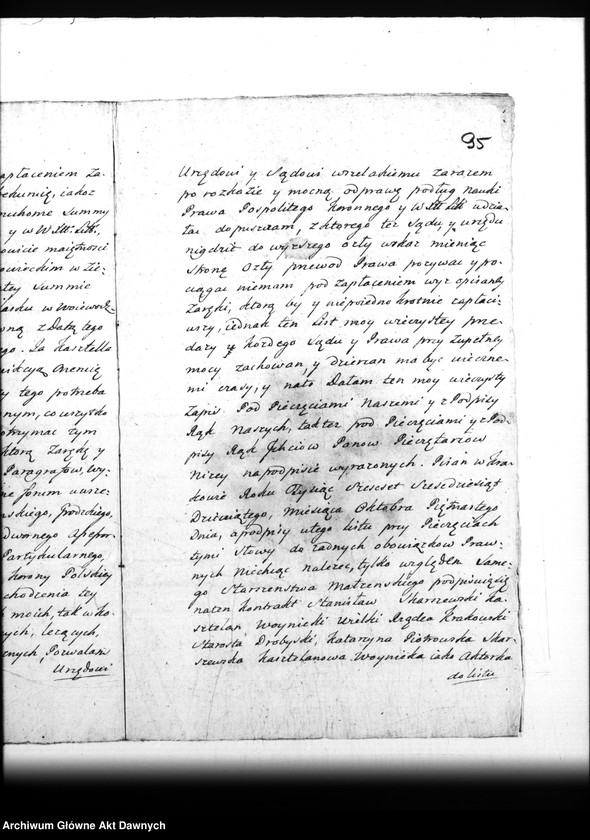 95
apłaceniem za-
bekunię, iakoż
ruchome Summy
y w W. Xtt. Litt.
owicie maiętności
owieckim w Zie-
tey Summie
w Woiewodz-
oną z Datą tego
go. Za kasztella
y tego potrzeba
nym, co wszytko
otrzymać tym
którą zaręką y
Paragrafow, wy-
re forum
skiego, Grodzkiego,
dwornego Assesor-
Partykularnego,
Korony Polskiey
chodzenia tey
moich, tak w ko-
ych, leżących,
cznych, Pozwalam
Urzędowi
Urzędowi y Sądowi wszelakiemu zarazem
po rozkazie y mocną odprawę podług nauki
Prawa Pospolitego Koronnego y W. Xtt. Litt. udzia-
łać dopuszczam, z którego też Sądu, y urzędu
nigdzie do wyższego czyły wskaz mieniąc
skoną Czyły przewod Prawa pozywać y po-
ciągać niemam pod zapłaceniem wyż opisaney
Zaręki, którą by y niepojedno krotnie zapłaci-
wszy, jednak ten List moy wieczystey prze-
daży u każdego Sądu y Prawa przy zupełney
mocy zachowan, y dzierżan ma być wieczne-
mi czasy, y nato Dałam ten moy wieczysty
Zapis. Pod Pieczęciami Naszemi y z Podpisy
Rąk Naszych, także pod Pieczęciami y z Pod-
pisy Rąk Ichmciow Panow Pieczętarzow
Niżey na podpisie wyrażonych. Pisan w Kra-
kowie Roku Tysiąc Szescset Szescdziesiąt
Dziewiątego, Miesiąca Oktobra Piętnastego
Dnia, a podpisy u tego listu przy Pieczęciach
tymi Słowy do żadnych obowiązkow Praw-
nych Niechcąc należeć, tylko względem Same-
go Starszenstwa Małżenskiego podpisuię się
na ten kontrakt Stanisław Skarszewski Ka-
sztelan Woynicki Wielki Rządca Krakowski
Starosta Drobyski, Katarzyna Piotrowska Skar-
szewska Kasztelanowa Woynicka iako Aktorka
do listu
Archiwum Główne Akt Dawnych